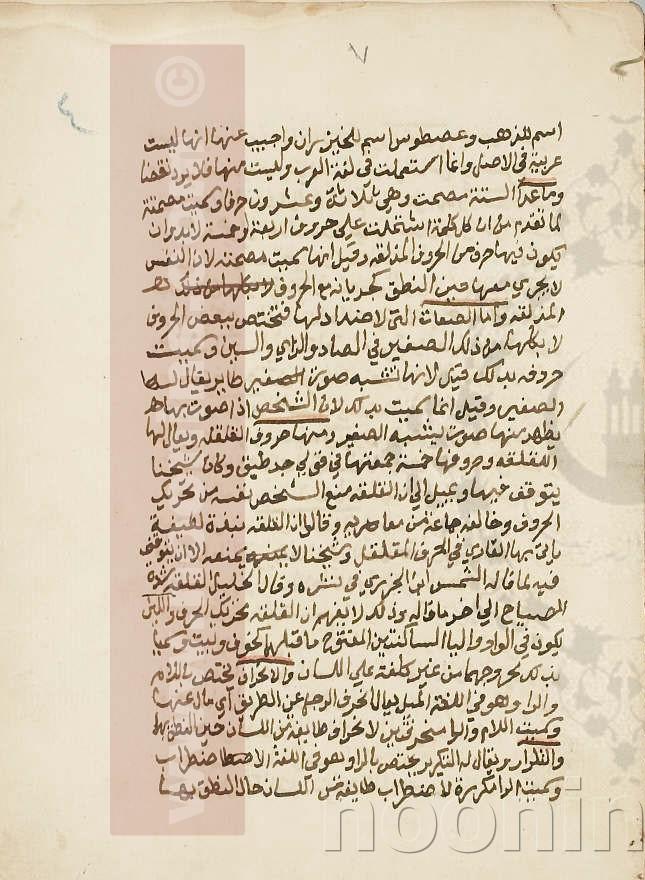 ٧
اسم للذهب وعصطوس اسم للخيزران واجيب عنها انها ليست
عربية في الاصل وانما استعملت في لغة العرب وليست منها فلا يرد نقضا
وما عدا الستة مصمت وهي ثلاثة وعشرون حرفا وسميت مصمتة
لما تقدم من ان كل كلمة اشتملت على حروف اربعة او خمسة لابد وان
يكون فيها حرف من الحروف المذلقه وقيل انها سميت مصمته لان النفس
لا يجري معها حين النطق كجريانه مع الحروف
المذلقه واما الصفات التي لا ضد لها فتختص ببعض الحروف
لا بكلها من ذلك الصفير في الصاد والزاي والسين وسميت
حروفه بذلك قيل لانها تشبه صوت الصفير طاير يقال له
الصفير وقيل انما سميت بذلك لان الشخص اذا صوت بها
يظهر منها صوت يشبه الصفير ومنها حروف القلقله ويقال لها
اللقلقه وحروفها خمسة جمعتها في قولي جد طبق وكان شيخنا
يتوقف فيها ويميل الى ان القلقه منع الشخص نفسه من تحريك
الحروف وخالفه جماعة من معاصريه وقالوا ان القلقه نبذة لطيفة
ياتي بها القاري في الحرف المقلقل وشيخنا لا يمنعه الا ان يتوقف
فيه لما قاله الشمس ابن الجزري في نشره وقال الخليل القلقه شدة
الصياح الى آخر ما قاله وذلك لا يفهم ان القلقه تحريك الحرف واللين
يكون في الواو واليا الساكنتين المفتوح ما قبلهما كخوف وبيت وسميا
بذلك لخروجهما من غير كلفة على اللسان والانحراف يختص باللام
والرا وهو في اللغة الميل يقال انحرف الرجل عن الطريق اي مال عنها
وسميت اللام والرا منحرفتين لانحراف طايفة من اللسان حين النطق بها
والتكرار ويقال له التكرير يختص بالرا وهو في اللغة الاضطراب
وسميت الرا مكررة لاضطراب طايفة من اللسان حال النطق بها
noonin